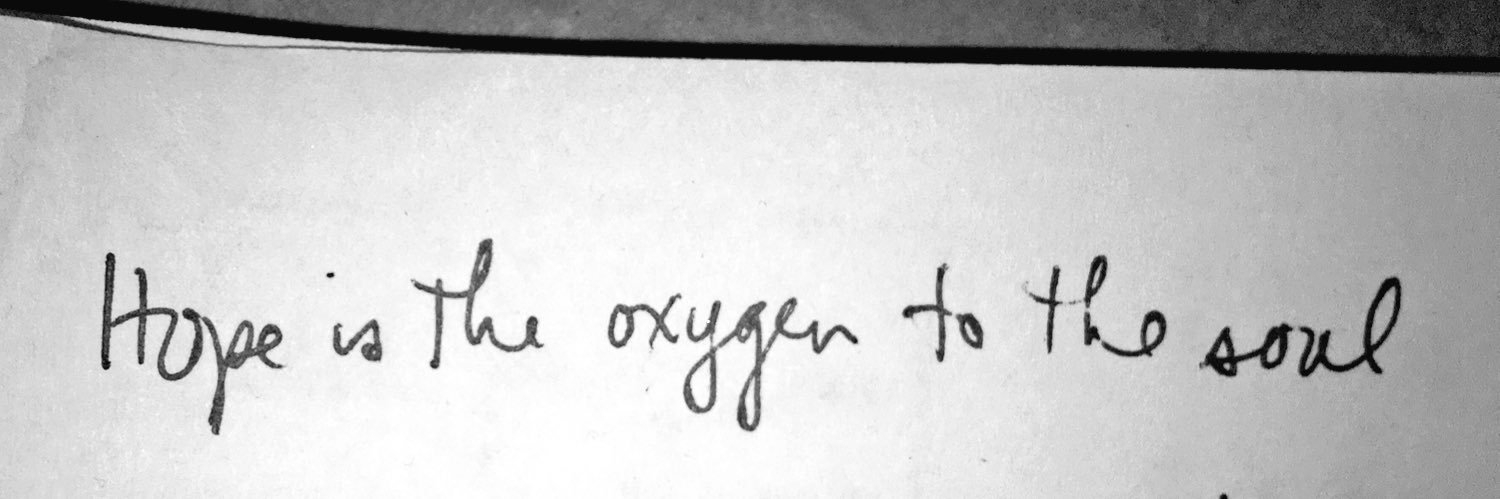 Hope is the oxygen to the soul